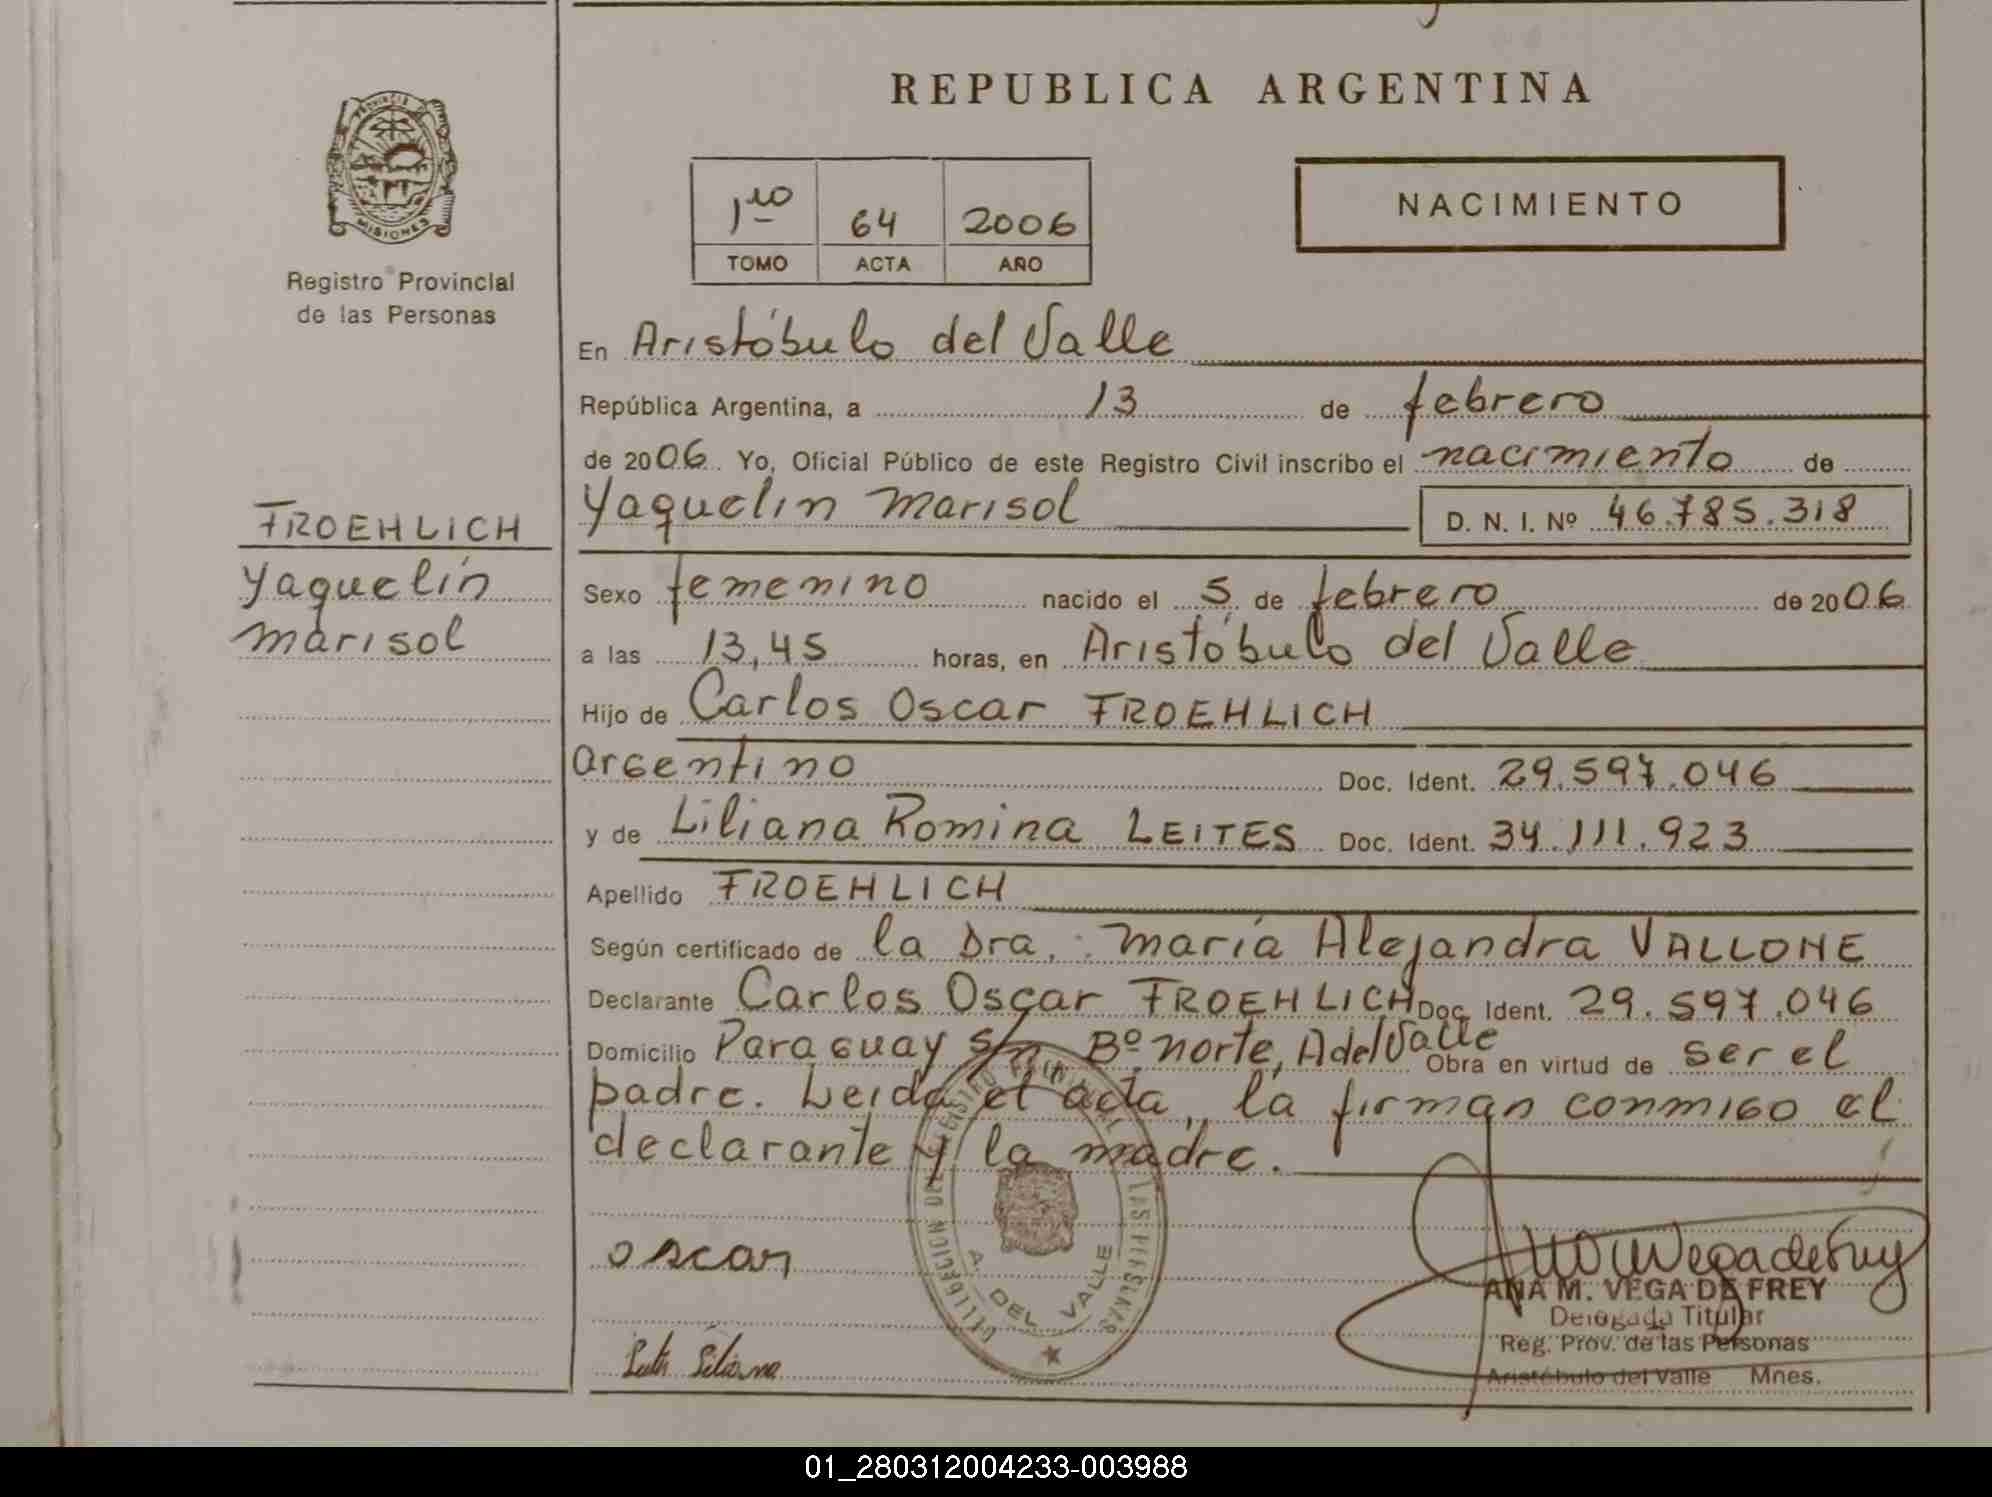 REPUBLICA ARGENTINA
PROVINCIA DE
MISIONES
Registro Provincial
de las Personas
1ro 64 2006
TOMO ACTA AÑO
NACIMIENTO
En Aristóbulo del Valle
República Argentina, a 13 de febrero
de 2006. Yo, Oficial Público de este Registro Civil inscribo el nacimiento de
Yaquelin Marisol D. N. I. Nº 46.785.318
FROEHLICH
Yaquelin
Marisol
Sexo femenino nacido el 5 de febrero de 2006
a las 13,45 horas, en Aristóbulo del Valle
Hijo de Carlos Oscar FROEHLICH
argentino Doc. Ident. 29.597.046
y de Liliana Romina LEITES Doc. Ident. 34.111.923
Apellido FROEHLICH
Según certificado de la Dra. María Alejandra VALLONE
Declarante Carlos Oscar FROEHLICH Doc. Ident. 29.597.046
Domicilio Paraguay s/n Bº norte, A del Valle Obra en virtud de ser el
padre. Leida el acta, la firman conmigo el
declarante y la madre.
A. DEL VALLE
oscar
ANA M. VEGA DE FREY
Delegada Titular
Reg. Prov. de las Personas
Aristóbulo del Valle Mnes.
01_280312004233-003988